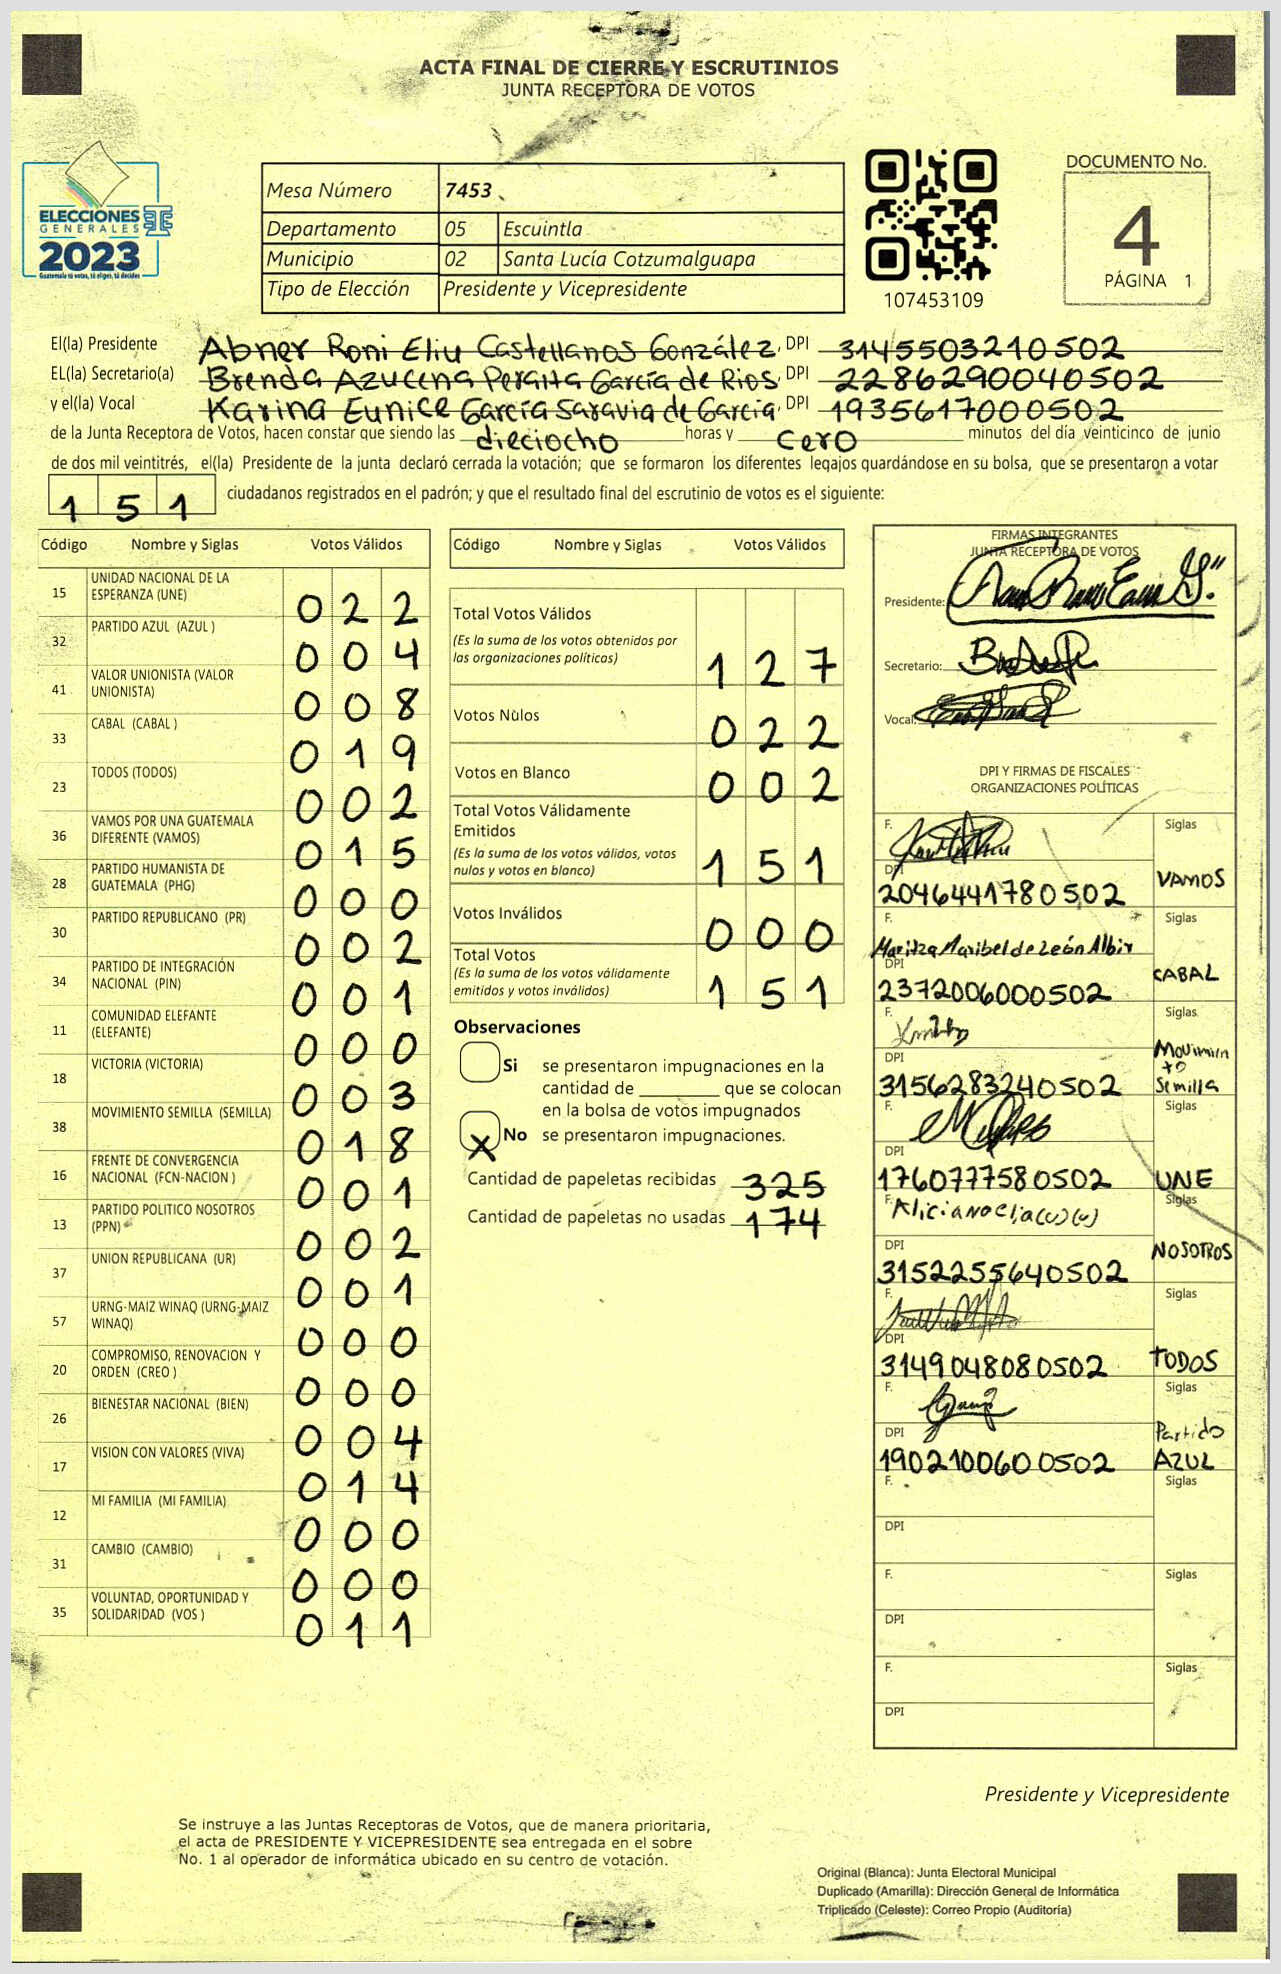 ACTA FINAL DE CIERRE Y ESCRUTINIOS
JUNTA RECEPTORA DE VOTOS
ELECCIONES
GENERALES
2023
Guatemala tú votas, tú eliges, tú decides
Mesa Número 7453
Departamento 05 Escuintla
Municipio 02 Santa Lucía Cotzumalguapa
Tipo de Elección Presidente y Vicepresidente
107453109
DOCUMENTO No.
4
PÁGINA 1
El(la) Presidente Abner Roni Eliu Castellanos González, DPI 3145503210502
EL(la) Secretario(a) Brenda Azucena Peralta García de Rios, DPI 2286290040502
y el(la) Vocal Karina Eunice García Saravia de García, DPI 1935617000502
de la Junta Receptora de Votos, hacen constar que siendo las dieciocho horas y cero minutos del día veinticinco de junio
de dos mil veintitrés, el(la) Presidente de la junta declaró cerrada la votación; que se formaron los diferentes legajos guardándose en su bolsa, que se presentaron a votar
151 ciudadanos registrados en el padrón; y que el resultado final del escrutinio de votos es el siguiente:
Código Nombre y Siglas Votos Válidos
15 UNIDAD NACIONAL DE LA ESPERANZA (UNE) 022
32 PARTIDO AZUL (AZUL ) 004
41 VALOR UNIONISTA (VALOR UNIONISTA) 008
33 CABAL (CABAL ) 019
23 TODOS (TODOS) 002
36 VAMOS POR UNA GUATEMALA DIFERENTE (VAMOS) 015
28 PARTIDO HUMANISTA DE GUATEMALA (PHG) 000
30 PARTIDO REPUBLICANO (PR) 002
34 PARTIDO DE INTEGRACIÓN NACIONAL (PIN) 001
11 COMUNIDAD ELEFANTE (ELEFANTE) 000
18 VICTORIA (VICTORIA) 003
38 MOVIMIENTO SEMILLA (SEMILLA) 018
16 FRENTE DE CONVERGENCIA NACIONAL (FCN-NACION ) 001
13 PARTIDO POLITICO NOSOTROS (PPN) 002
37 UNION REPUBLICANA (UR) 001
57 URNG-MAIZ WINAQ (URNG-MAIZ WINAQ) 000
20 COMPROMISO, RENOVACION Y ORDEN (CREO ) 000
26 BIENESTAR NACIONAL (BIEN) 004
17 VISION CON VALORES (VIVA) 014
12 MI FAMILIA (MI FAMILIA) 000
31 CAMBIO (CAMBIO) 000
35 VOLUNTAD, OPORTUNIDAD Y SOLIDARIDAD (VOS ) 011
Código Nombre y Siglas Votos Válidos
Total Votos Válidos
(Es la suma de los votos obtenidos por
las organizaciones políticas) 127
Votos Nulos 022
Votos en Blanco 002
Total Votos Válidamente
Emitidos
(Es la suma de los votos válidos, votos
nulos y votos en blanco) 151
Votos Inválidos 000
Total Votos
(Es la suma de los votos válidamente
emitidos y votos inválidos) 151
Observaciones
Si se presentaron impugnaciones en la
cantidad de ________ que se colocan
en la bolsa de votos impugnados
X No se presentaron impugnaciones.
Cantidad de papeletas recibidas 325
Cantidad de papeletas no usadas 174
FIRMAS INTEGRANTES
JUNTA RECEPTORA DE VOTOS
Presidente:
Secretario:
Vocal:
DPI Y FIRMAS DE FISCALES
ORGANIZACIONES POLÍTICAS
F. Siglas
DPI
2046441780502 VAMOS
F. Siglas
Maritza Maribel de León Albir
DPI
2372006000502 CABAL
F. Siglas
DPI Movimiento
3156283240502 Semilla
F. Siglas
DPI
1760777580502 UNE
F. Siglas
DPI
3152255640502 NOSOTROS
F. Siglas
DPI
3149048080502 TODOS
F. Siglas
DPI Partido
1902100600502 AZUL
F. Siglas
DPI
F. Siglas
DPI
F. Siglas
DPI
Presidente y Vicepresidente
Se instruye a las Juntas Receptoras de Votos, que de manera prioritaria,
el acta de PRESIDENTE Y VICEPRESIDENTE sea entregada en el sobre
No. 1 al operador de informática ubicado en su centro de votación.
Original (Blanca): Junta Electoral Municipal
Duplicado (Amarilla): Dirección General de Informática
Triplicado (Celeste): Correo Propio (Auditoría)